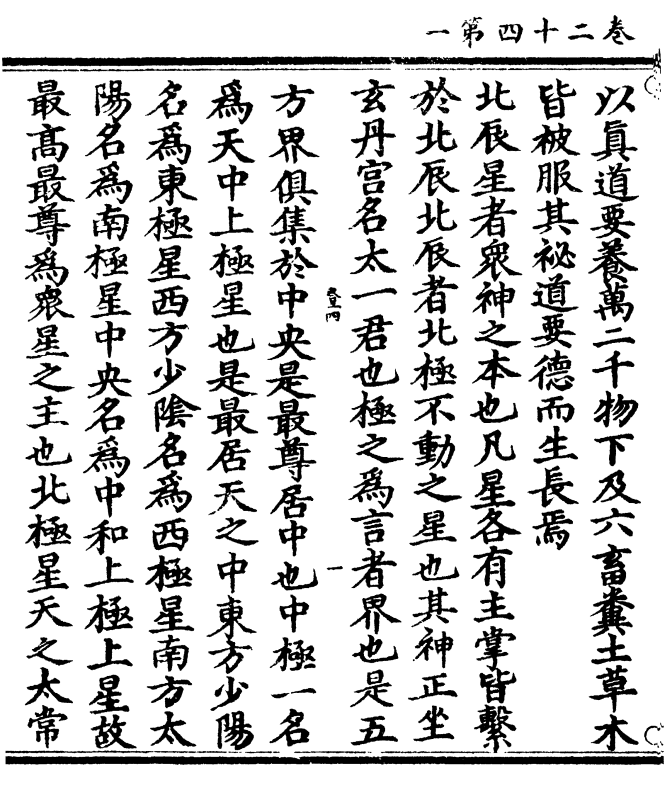 卷二十四第一
以真道要養萬二千物下及六畜糞土草木
皆被服其祕道要德而生長焉
北辰星者衆神之本也凡星各有主掌皆繫
於北辰北辰者北極不動之星也其神正坐
玄丹宫名太一君也極之爲言者界也是五
方界俱集於中央是最尊居中也中極一名
爲天中上極星也是最居天之中東方少陽
名爲東極星西方少陰名爲西極星南方太
陽名爲南極星中央名爲中和上極上星故
最高最尊爲衆星之主也北極星天之太常